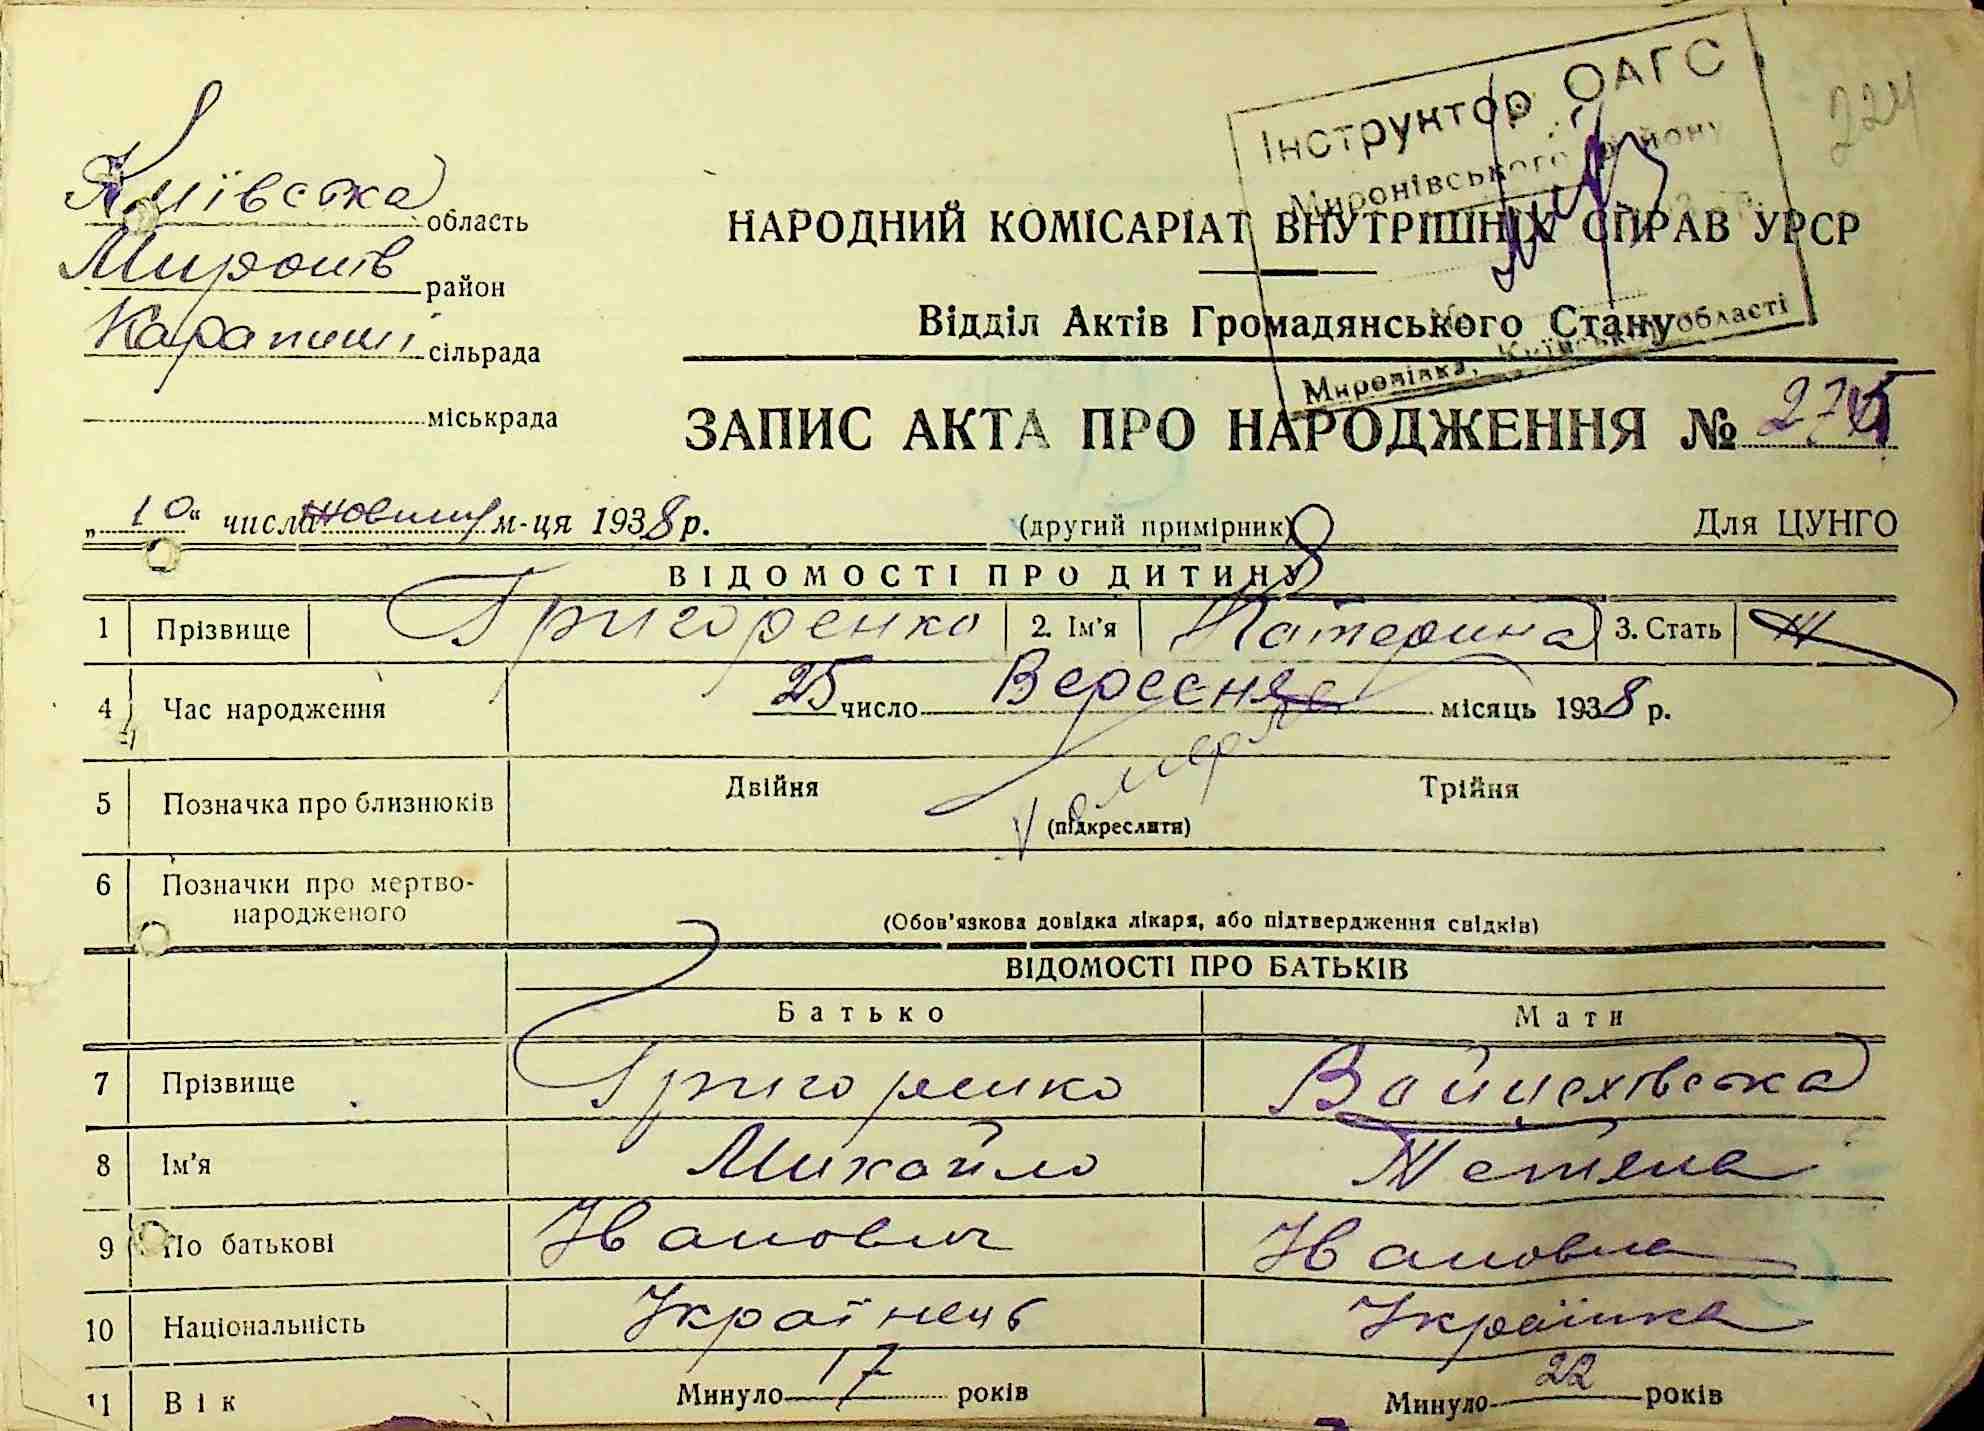 Інструктор ОАГС
Миронівського району
Миронівка, Київської області
224
Київська область
Миронів район
Карапиші сільрада
міськрада
НАРОДНИЙ КОМІСАРІАТ ВНУТРІШНІХ СПРАВ УРСР
Відділ Актів Громадянського Стану
ЗАПИС АКТА ПРО НАРОДЖЕННЯ №
„10“ числа жовтня м-ця 1938 р. (другий примірник) Для ЦУНГО
ВІДОМОСТІ ПРО ДИТИНУ
1 Прізвище Григоренко 2. Ім'я Катерина 3. Стать ж
4 Час народження 25 число Вересня місяць 1938 р.
померла
5 Позначка про близнюків Двійня Трійня
(підкреслити)
6 Позначки про мертво-
народженого
(Обов'язкова довідка лікаря, або підтвердження свідків)
ВІДОМОСТІ ПРО БАТЬКІВ
Батько Мати
7 Прізвище Григоренко Войцехівська
8 Ім'я Михайло Тетяна
9 По батькові Іванович Івановна
10 Національність Українець Українка
11 Вік Минуло 17 років Минуло 22 років